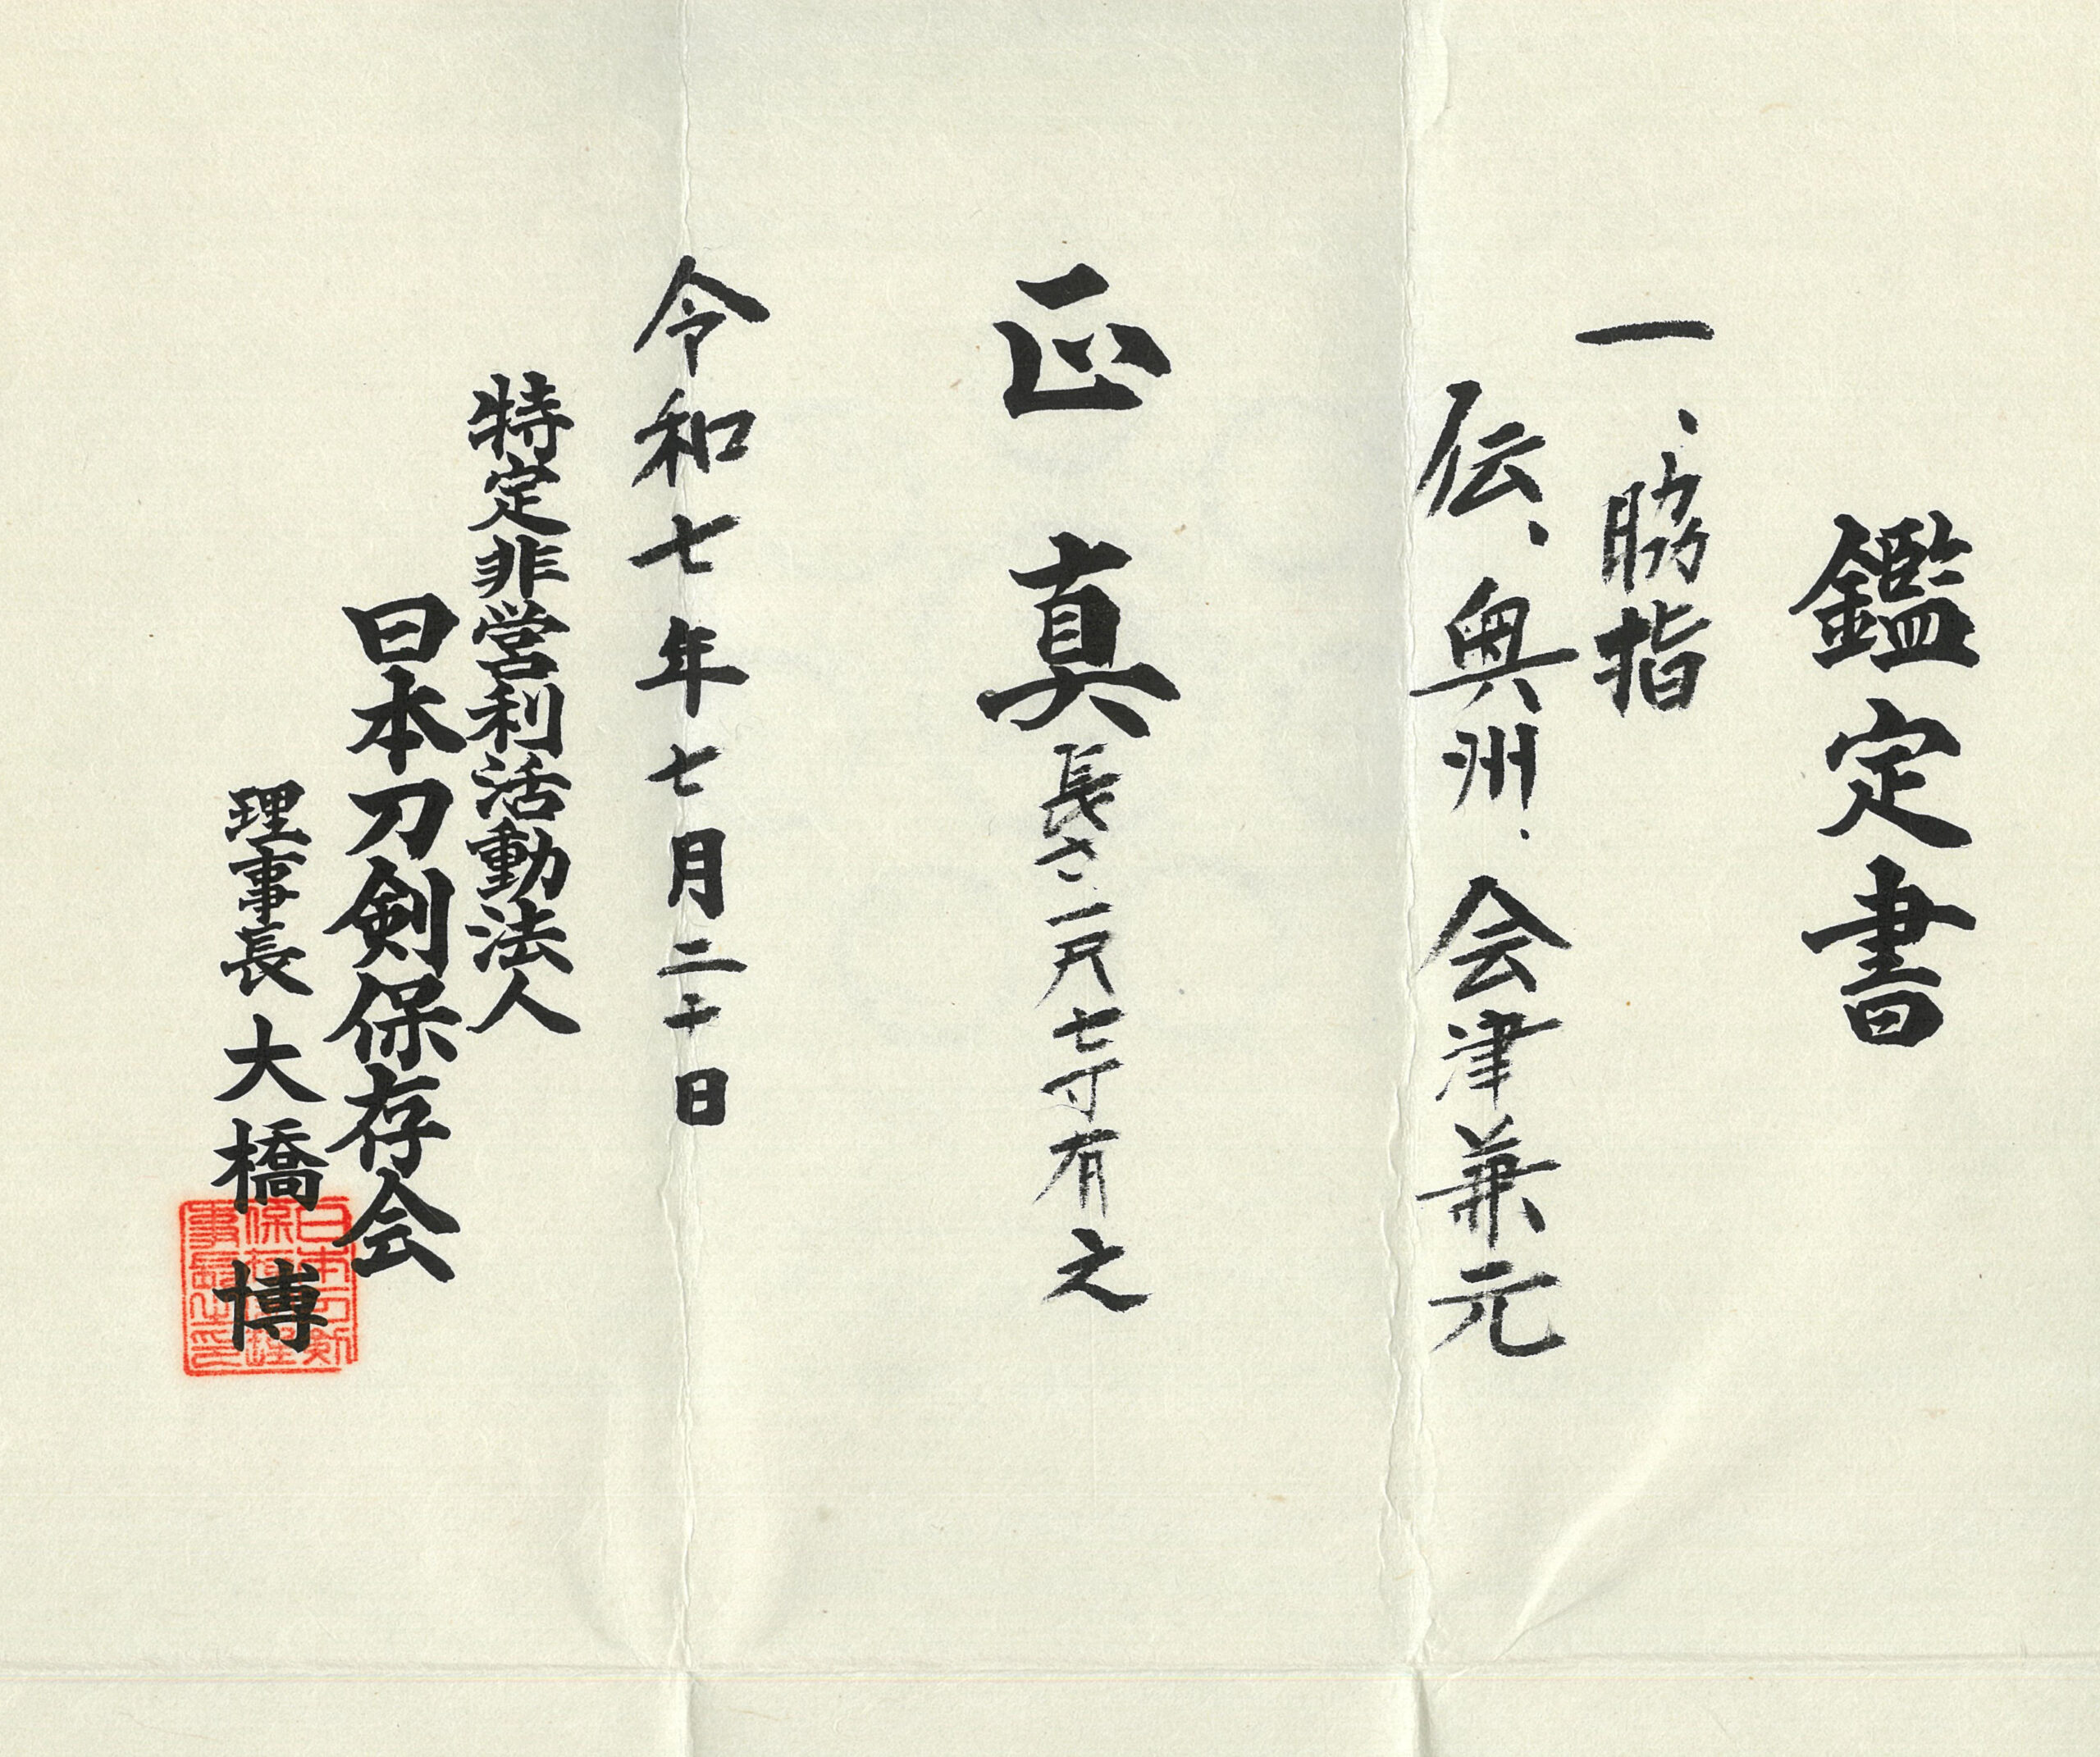 鑑定書
一、脇指
伝、奥州、会津兼元
正真
長さ一尺七寸有之
令和七年七月二十日
特定非営利活動法人
日本刀剣保存会
理事長 大橋 博